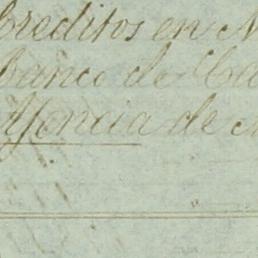 Creditos en
Banco de
Agencia de